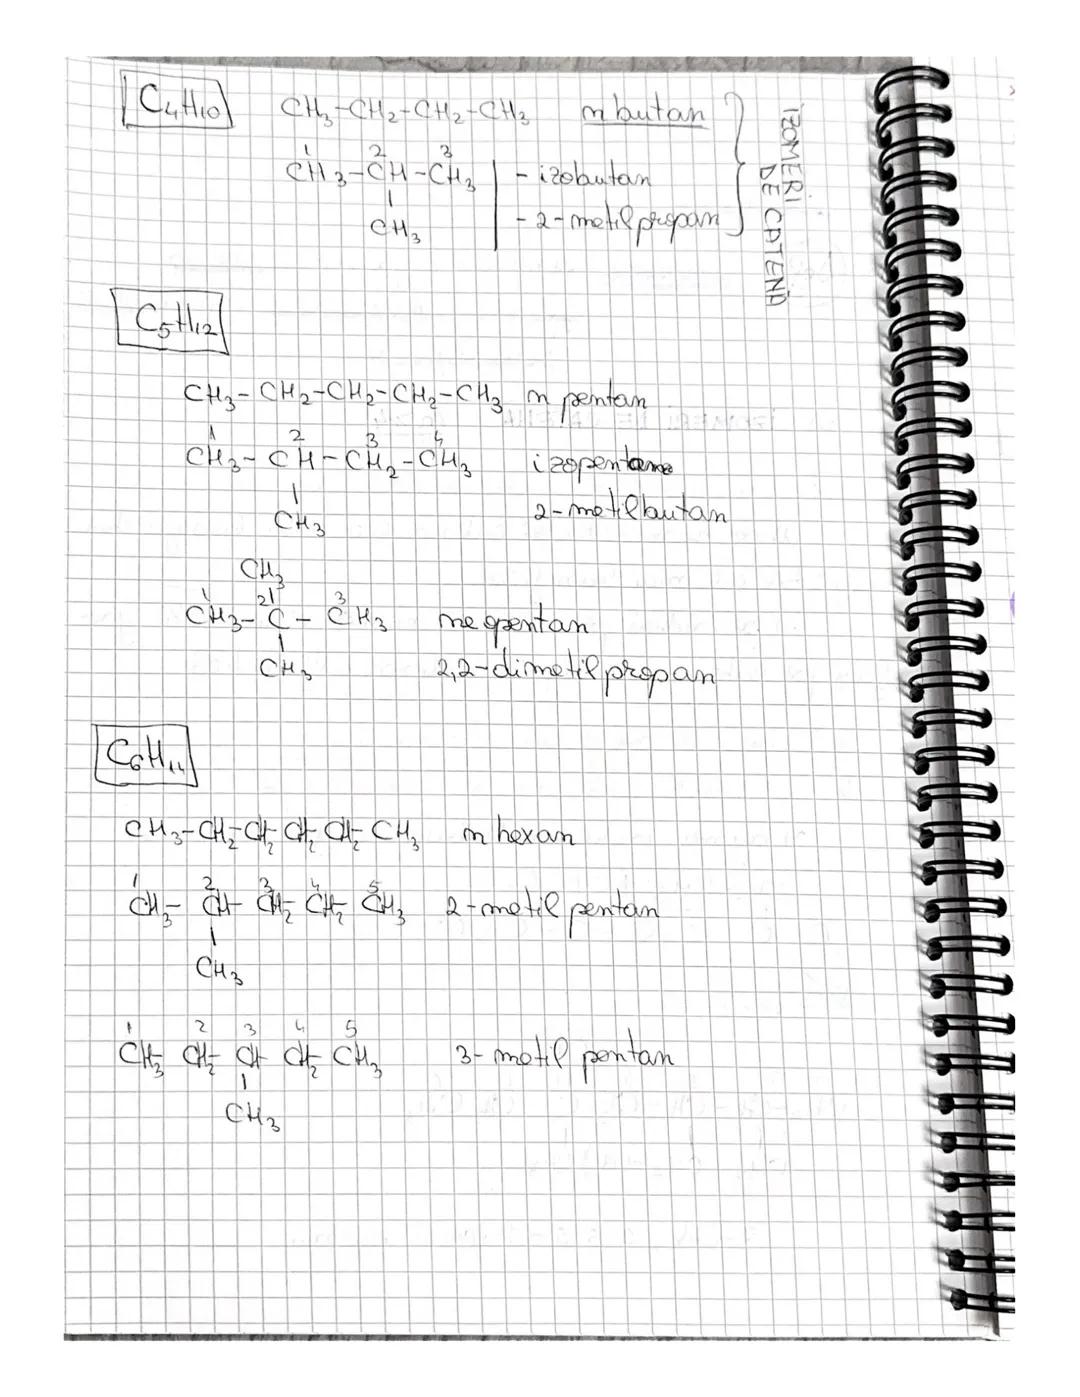 C₄H₁₀
CH₃-CH₂-CH₂-CH₃ n butan
1 2 3
CH₃-CH-CH₃ - izobutan
|
CH₃ - 2-metilpropan
IZOMERI
DE CATENĂ
C₅H₁₂
CH₃-CH₂-CH₂-CH₂-CH₃ n pentan
1 2 3 4
CH₃-CH-CH₂-CH₃ izopentane
|
CH₃ 2-metilbutan
CH₃
1 2| 3
CH₃-C-CH₃ neopentan
|
CH₃ 2,2-dimetilpropan
C₆H₁₄
CH₃-CH₂-CH₂-CH₂-CH₂-CH₃ n hexan
1 2 3 4 5
CH₃-CH-CH₂-CH₂-CH₃ 2-metil pentan
|
CH₃
1 2 3 4 5
CH₃-CH₂-CH-CH₂-CH₃ 3-metil pentan
|
CH₃